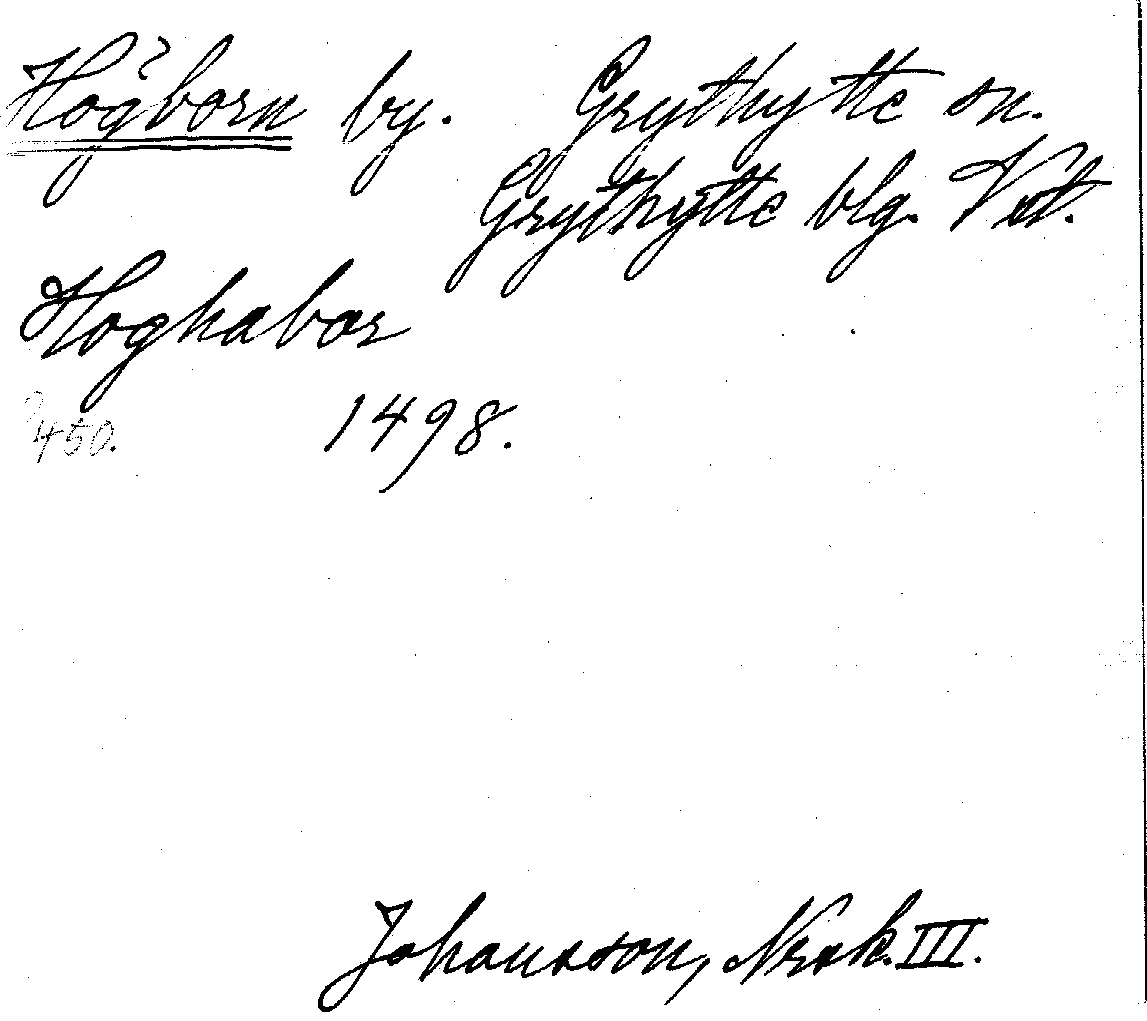 Högborn by. Grythytte sn.
Grythytte blg. Vst.
Hoghabor
450. 1498.
Johansson, Nrsk. III.